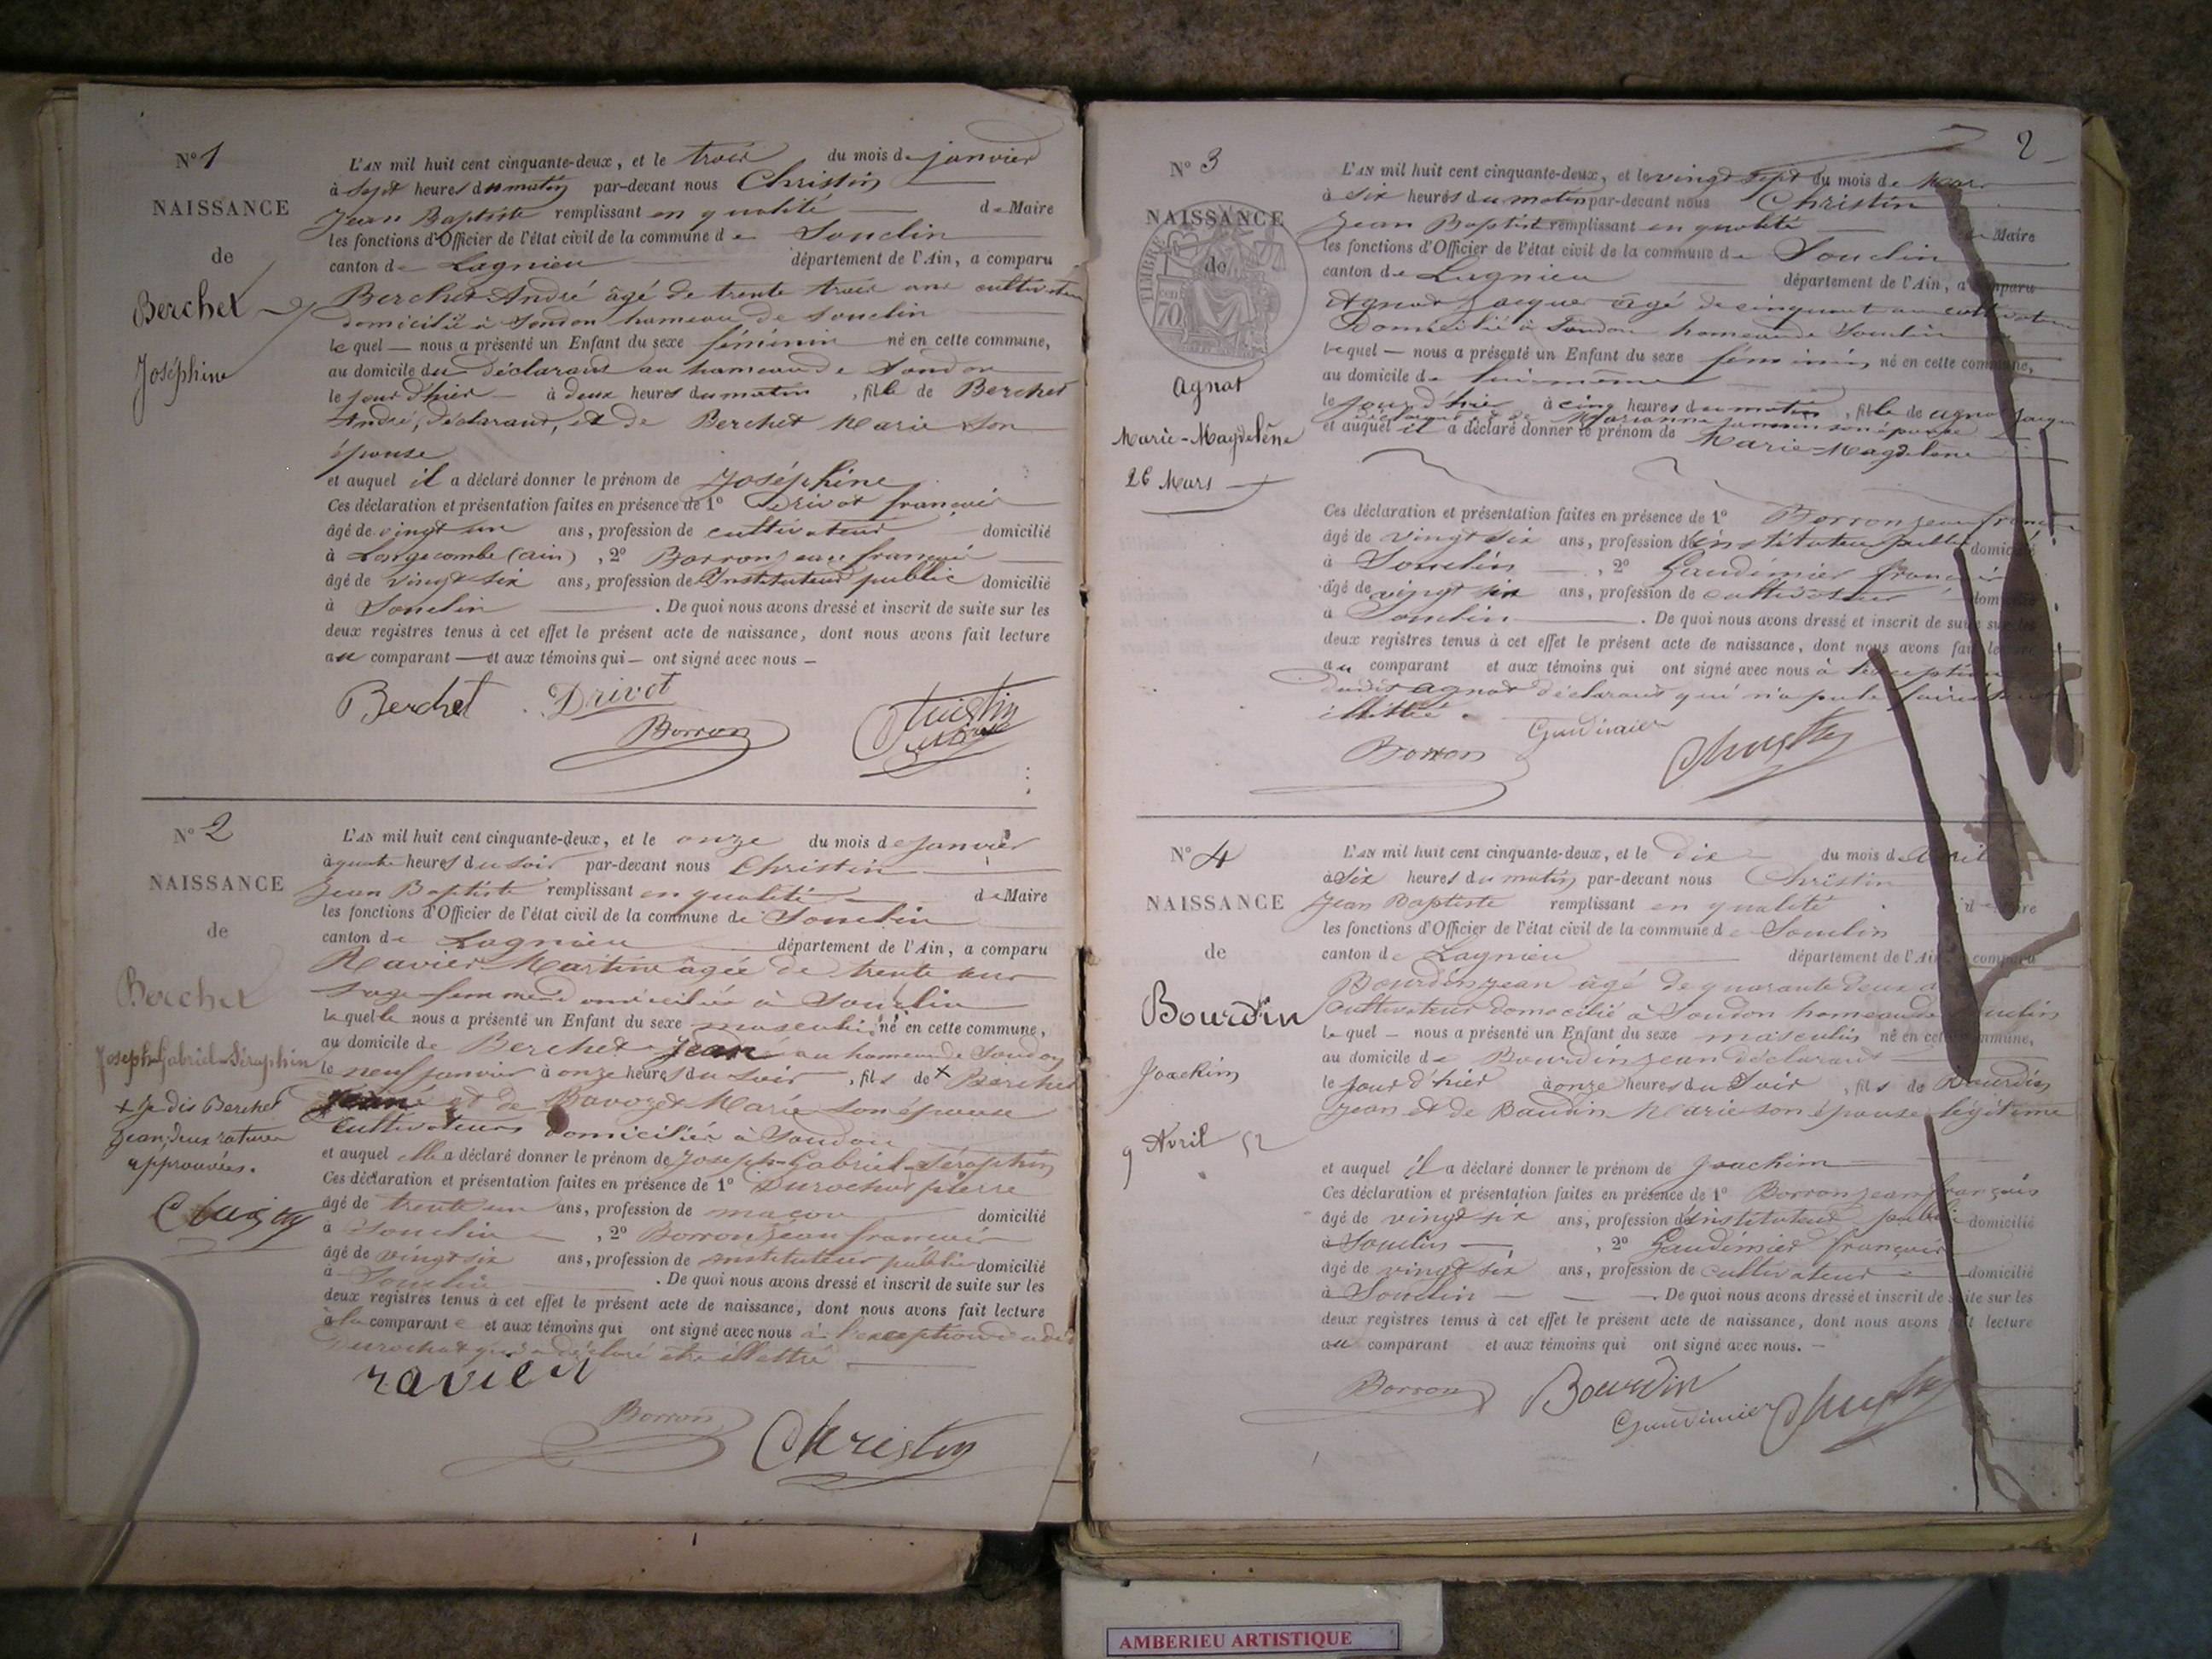 N° 1
NAISSANCE
de
Berchet
Joséphine
L'AN mil huit cent cinquante-deux, et le trois du mois de janvier
à sept heures du matin par-devant nous Christin
Jean Baptiste remplissant en qualité de Maire
les fonctions d'Officier de l'état civil de la commune de Souclin
canton de Lagnieu département de l'Ain, a comparu
Berchet André âgé de trente trois ans cultivateur
domicilié à Soudon hameau de Souclin
lequel — nous a présenté un Enfant du sexe féminin né en cette commune,
au domicile du déclarant au hameau de Soudon
le jour d'hier à deux heures du matin, fille de Berchet
André, déclarant, et de Berchet Marie son
épouse
et auquel il a déclaré donner le prénom de Joséphine
Ces déclaration et présentation faites en présence de 1° Drivot françois
âgé de vingt un ans, profession de cultivateur domicilié
à Longecombe (ain), 2° Borron jean françois
âgé de vingt six ans, profession de Instituteur public domicilié
à Souclin. De quoi nous avons dressé et inscrit de suite sur les
deux registres tenus à cet effet le présent acte de naissance, dont nous avons fait lecture
au comparant — et aux témoins qui — ont signé avec nous —
Berchet Drivot
Borron Christin
N° 2
NAISSANCE
de
Berchet
Joseph-Gabriel-Séraphin
+ je dis Berchet
Jean, deux ratures
approuvées.
Christin
L'AN mil huit cent cinquante-deux, et le onze du mois de janvier
à quatre heures du soir par-devant nous Christin
Jean Baptiste remplissant en qualité de Maire
les fonctions d'Officier de l'état civil de la commune de Souclin
canton de Lagnieu département de l'Ain, a comparu
Ravier Martine âgée de trente ans
sage femme domiciliée à Souclin
laquelle nous a présenté un Enfant du sexe masculin né en cette commune,
au domicile de Berchet Jean au hameau de Soudon
le neuf janvier à onze heures du soir, fils de + Berchet
et de Bavozet Marie son épouse
cultivateurs domiciliés à Soudon
et auquel elle a déclaré donner le prénom de Joseph-Gabriel-Séraphin
Ces déclaration et présentation faites en présence de 1° Durochat pierre
âgé de trente un ans, profession de maçon domicilié
à Souclin, 2° Borron jean françois
âgé de vingt six ans, profession de instituteur public domicilié
à Souclin. De quoi nous avons dressé et inscrit de suite sur les
deux registres tenus à cet effet le présent acte de naissance, dont nous avons fait lecture
à la comparante et aux témoins qui ont signé avec nous à l'exception dudit
Durochat qui a déclaré être illettré
ravier
Borron Christin
2
N° 3
NAISSANCE
de
TIMBRE
70
Agnat
Marie-Magdelène
26 Mars
L'AN mil huit cent cinquante-deux, et le vingt sept du mois de Mars
à six heures du matin par-devant nous Christin
Jean Baptiste remplissant en qualité de Maire
les fonctions d'Officier de l'état civil de la commune de Souclin
canton de Lagnieu département de l'Ain, a comparu
Agnat Jacques âgé de cinquante ans cultivateur
domicilié à Soudon hameau de Souclin
lequel — nous a présenté un Enfant du sexe féminin né en cette commune,
au domicile de lui même
le jour d'hier à cinq heures du matin, fille de Agnat Jacques
déclarant et de Marianne son épouse
et auquel il a déclaré donner le prénom de Marie Magdelène
Ces déclaration et présentation faites en présence de 1° Borron jean françois
âgé de vingt six ans, profession d'instituteur public domicilié
à Souclin, 2° Gaudimier françois
âgé de vingt six ans, profession de cultivateur domicilié
à Souclin. De quoi nous avons dressé et inscrit de suite sur les
deux registres tenus à cet effet le présent acte de naissance, dont nous avons fait lecture
au comparant et aux témoins qui ont signé avec nous à l'exception
dudit Agnat déclarant qui n'a pu le faire
illettré.
Borron Gaudimier Christin
N° 4
NAISSANCE
de
Bourdin
Joachim
9 Avril 52
L'AN mil huit cent cinquante-deux, et le dix du mois d'Avril
à six heures du matin par-devant nous Christin
Jean Baptiste remplissant en qualité de Maire
les fonctions d'Officier de l'état civil de la commune de Souclin
canton de Lagnieu département de l'Ain a comparu
Bourdin jean âgé de quarante deux
cultivateur domicilié à Soudon hameau de Souclin
lequel — nous a présenté un Enfant du sexe masculin né en cette commune,
au domicile de Bourdin jean déclarant
le jour d'hier à onze heures du Soir, fils de Bourdin
jean et de Baudin Marie son épouse légitime
et auquel il a déclaré donner le prénom de Joachim
Ces déclaration et présentation faites en présence de 1° Borron jean françois
âgé de vingt six ans, profession d'instituteur public domicilié
à Souclin, 2° Gaudimier françois
âgé de vingt six ans, profession de cultivateur domicilié
à Souclin. De quoi nous avons dressé et inscrit de suite sur les
deux registres tenus à cet effet le présent acte de naissance, dont nous avons fait lecture
au comparant et aux témoins qui ont signé avec nous. —
Borron Bourdin
Gaudimier Christin
AMBERIEU ARTISTIQUE